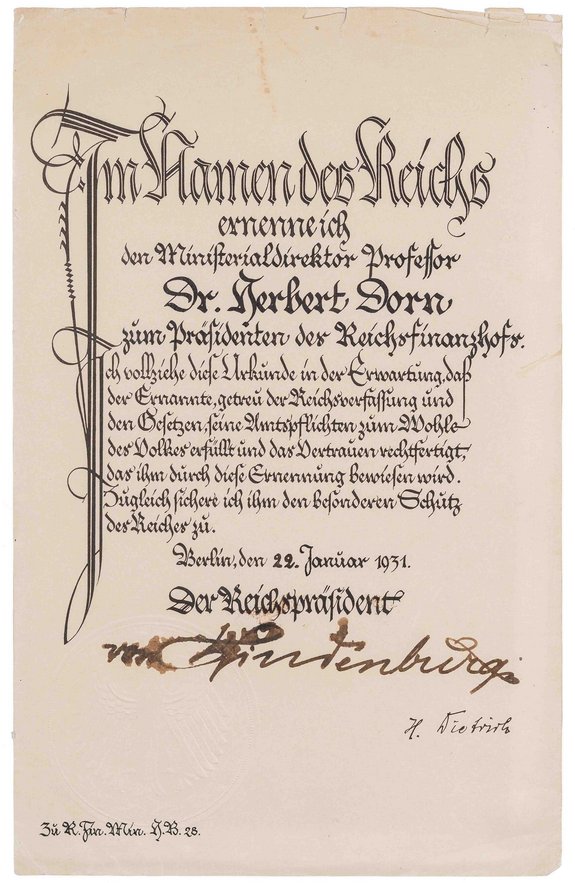 Im Namen des Reichs
ernenne ich
den Ministerialdirektor Professor
Dr. Herbert Dorn
zum Präsidenten des Reichsfinanzhofs.
Ich vollziehe diese Urkunde in der Erwartung, daß
der Ernannte, getreu der Reichsverfassung und
den Gesetzen, seine Amtspflichten zum Wohle
des Volkes erfüllt und das Vertrauen rechtfertigt,
das ihm durch diese Ernennung bewiesen wird.
Zugleich sichere ich ihm den besonderen Schutz
des Reiches zu.
Berlin, den 22. Januar 1931.
Der Reichspräsident
von Hindenburg
H. Dietrich
Zu R. Fin. Min. H.B. 28.